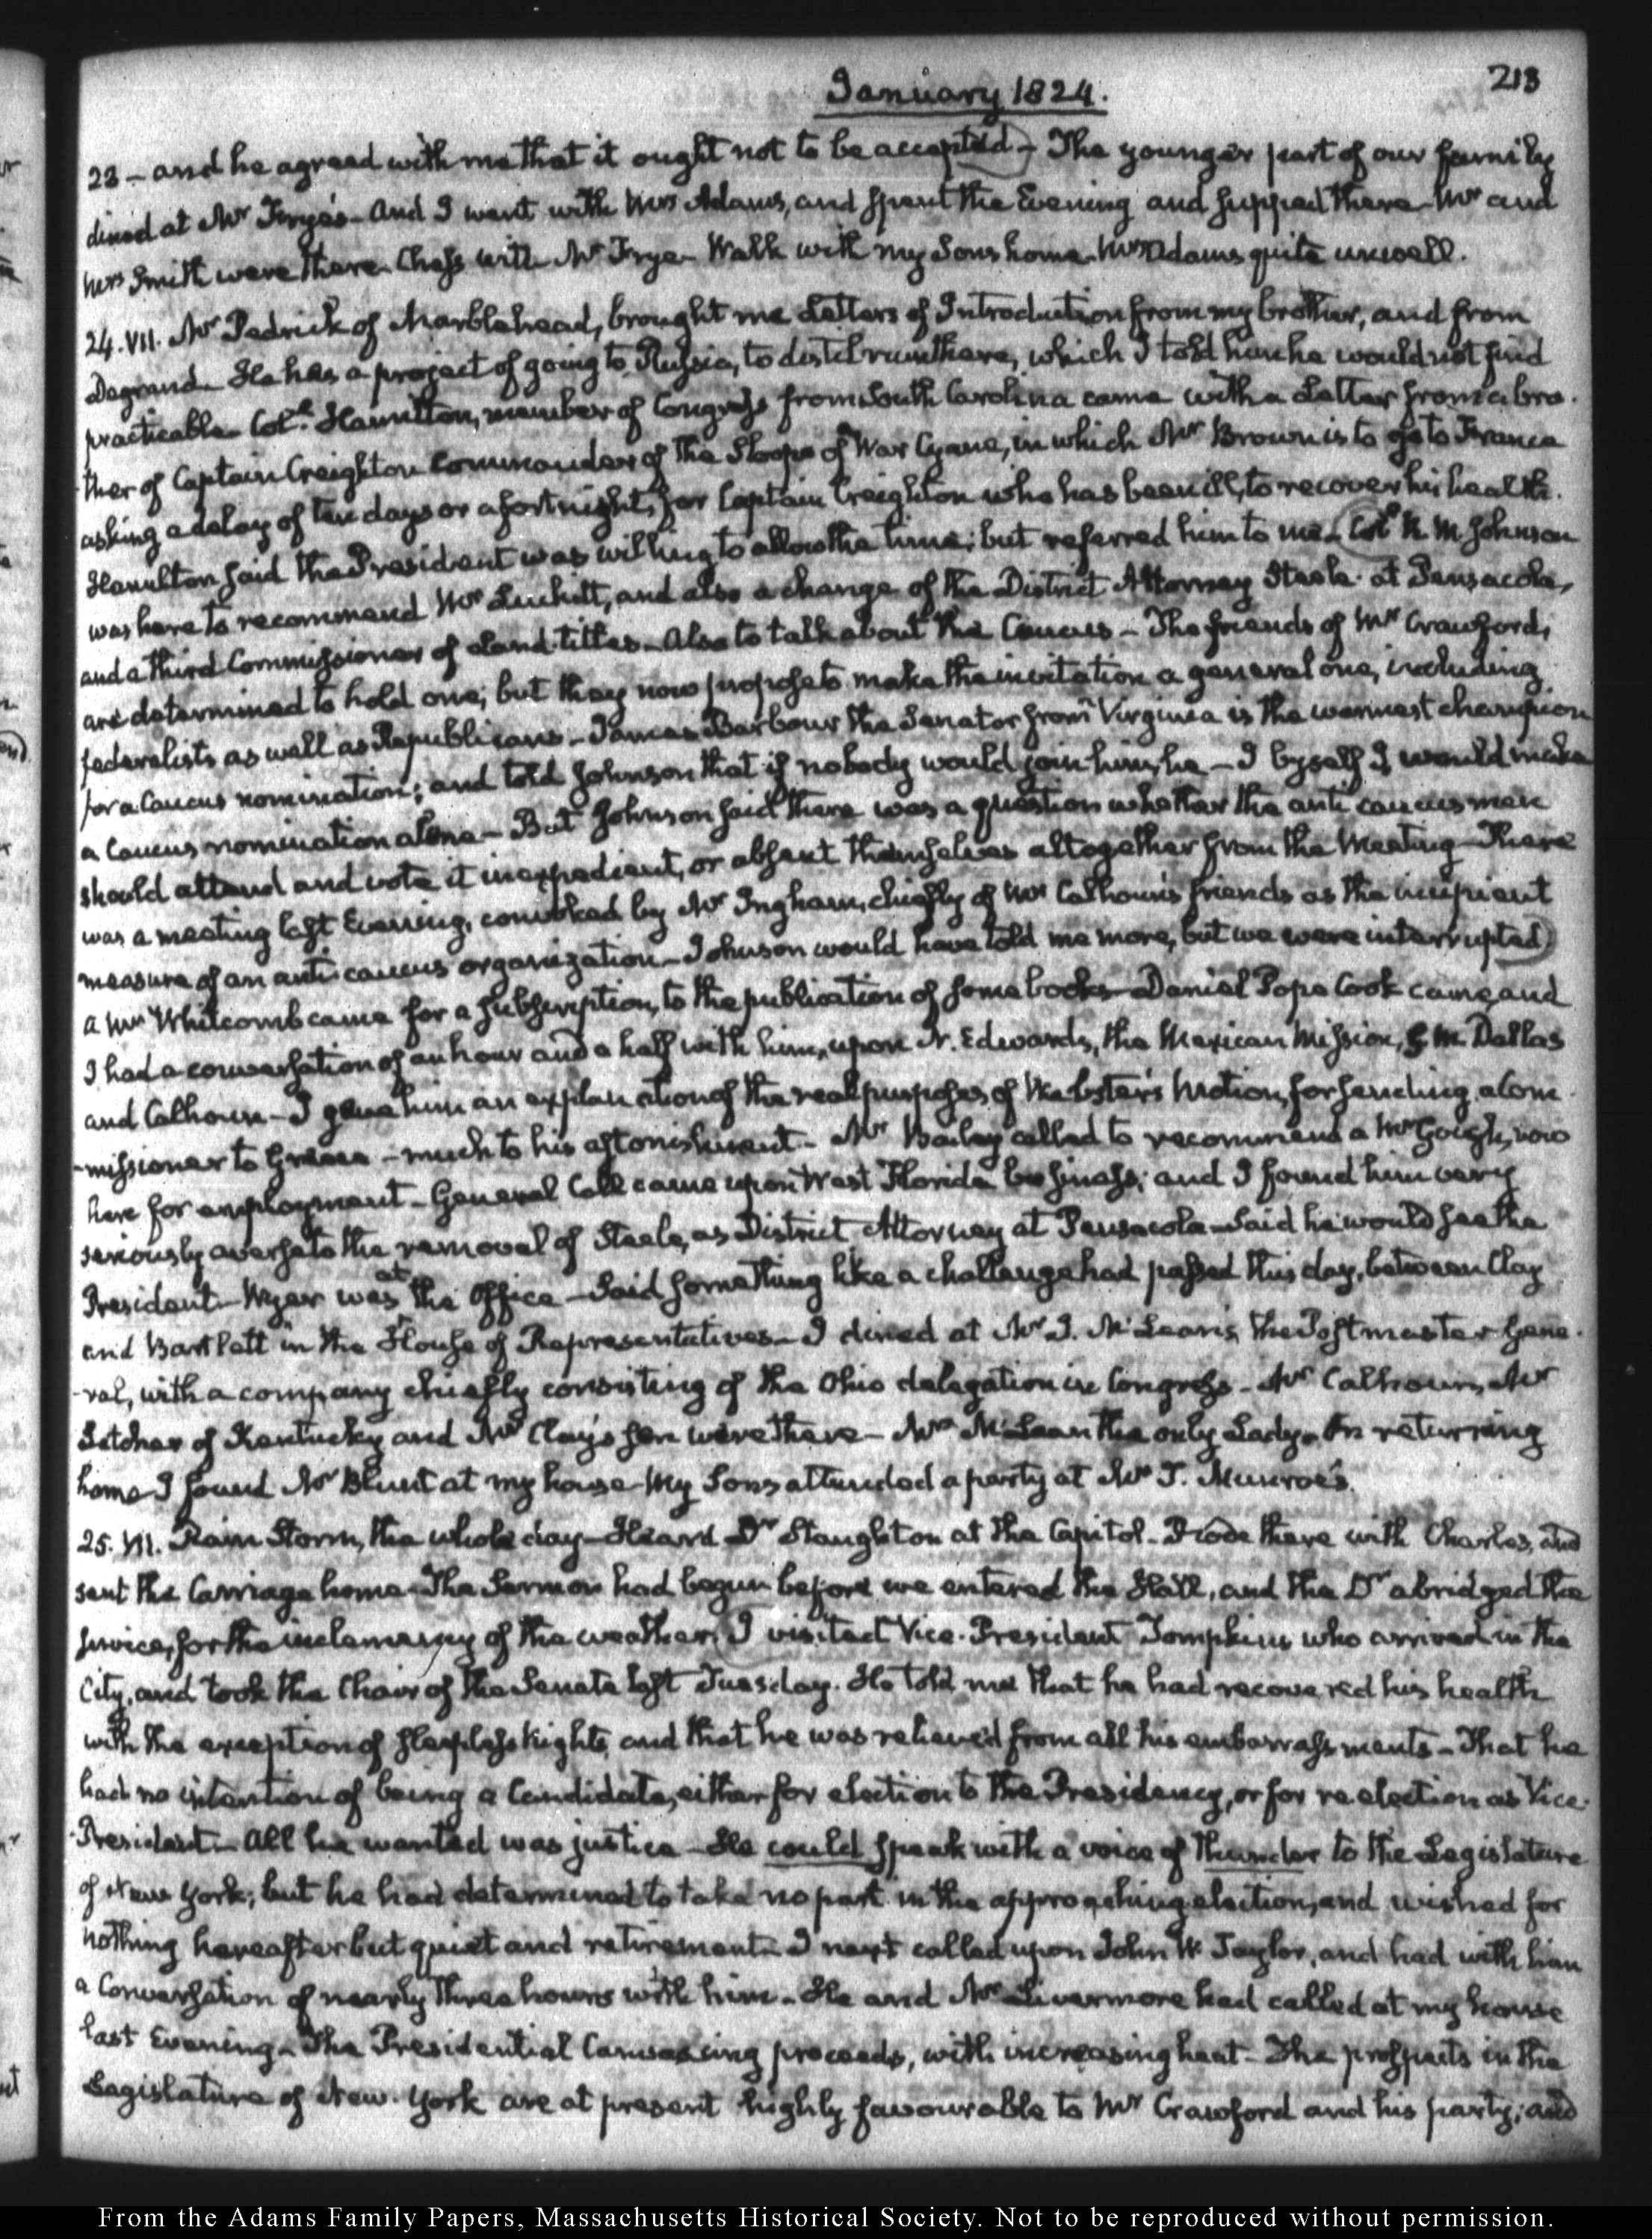 January 1824.
213
23 - and he agreed with me that it ought not to be accepted - The younger part of our family
dined at Mr Frye's - And I went with Mrs Adams, and spent the Evening and supped there - Mr and
Mrs Smith were there. Chess with Mr Frye - Walk with my Sons home - Mrs Adams quite unwell.
24. VII. Mr Pedrick of Marblehead, brought me Letters of Introduction from my brother, and from
Degrand. He has a project of going to Russia, to distil rum there, which I told him he would not find
practicable - Coll. Hamilton, member of Congress from South Carolina came with a Letter from a bro-
-ther of Captain Creighton Commander of the Sloop of War Cyane, in which Mr Brown is to go to France
asking a delay of ten days or a fortnight, for Captain Creighton who has been ill, to recover his health.
Hamilton said the President was willing to allow the time; but referred him to me - Coll R. M. Johnson
was here to recommend Mr Luckett, and also a change of the District Attorney Steele at Pensacola,
and a third Commissioner of Land-titles - Also to talk about the Caucus - The friends of Mr Crawford,
are determined to hold one; but they now propose to make the invitation a general one, including
federalists as well as Republicans - James Barbour the Senator from Virginia is the warmest champion
for a Caucus nomination; and told Johnson that if nobody would join him, he - I byself I would make
a Caucus nomination alone - But Johnson said there was a question whether the anti caucus men
should attend and vote it inexpedient, or absent themselves altogether from the Meeting - There
was a meeting last Evening, convoked by Mr Ingham, chiefly of Mr Calhoun's friends as the incipient
measure of an anti-caucus organization - Johnson would have told me more, but we were interrupted)
A Mr Whitcomb came for a subscription, to the publication of some books - Daniel Pope Cook came, and
I had a conversation of an hour and a half with him, upon N. Edwards, the Mexican Mission, G. M. Dallas
and Calhoun - I gave him an explanation of the real purposes, of Webster's Motion, for sending a Com-
-missioner to Greece - much to his astonishment - Mr Bailey called to recommend a Mr now
here for employment - General Call came upon West Florida business; and I found him very
seriously averse to the removal of Steele, as District Attorney at Pensacola - Said he would see the
President - Wyer was at the Office - Said something like a challenge had passed this day, between Clay
and Bartlett in the House of Representatives - I dined at Mr J. McLean's, the Postmaster Gene-
-ral, with a company chiefly consisting of the Ohio delegation in Congress - Mr Calhoun, Mr
Letcher of Kentucky and Mr Clay's son were there - Mrs McLean the only Lady - On returning
home I found Mr Blunt at my house - My Sons attended a party at Mr T. Munroe's.
25. VII. Rain Storm, the whole day - Heard Dr Staughton at the Capitol - Rode there with Charles, and
sent the Carriage home - The Sermon had begun before we entered the Hall, and the Dr abridged the
service, for the inclemency of the weather. I visited Vice-President Tompkins who arrived in the
City, and took the Chair of the Senate last Tuesday. He told me that he had recovered his health
with the exception of sleepless Nights, and that he was relieved from all his embarrassments - That he
had no intention of being a Candidate, either for election to the Presidency, or for re-election as Vice-
-President - All he wanted was justice - He could speak with a voice of thunder to the Legislature
of New York; but he had determined to take no part in the approaching election, and wished for
nothing hereafter but quiet and retirement - I next called upon John W. Taylor, and had with him
a Conversation of nearly three hours with him - He and Mr Livermore had called at my house
last Evening - The Presidential Canvassing proceeds, with increasing heat - The prospects in the
Legislature of New-York are at present highly favourable to Mr Crawford and his party; and
From the Adams Family Papers, Massachusetts Historical Society. Not to be reproduced without permission.